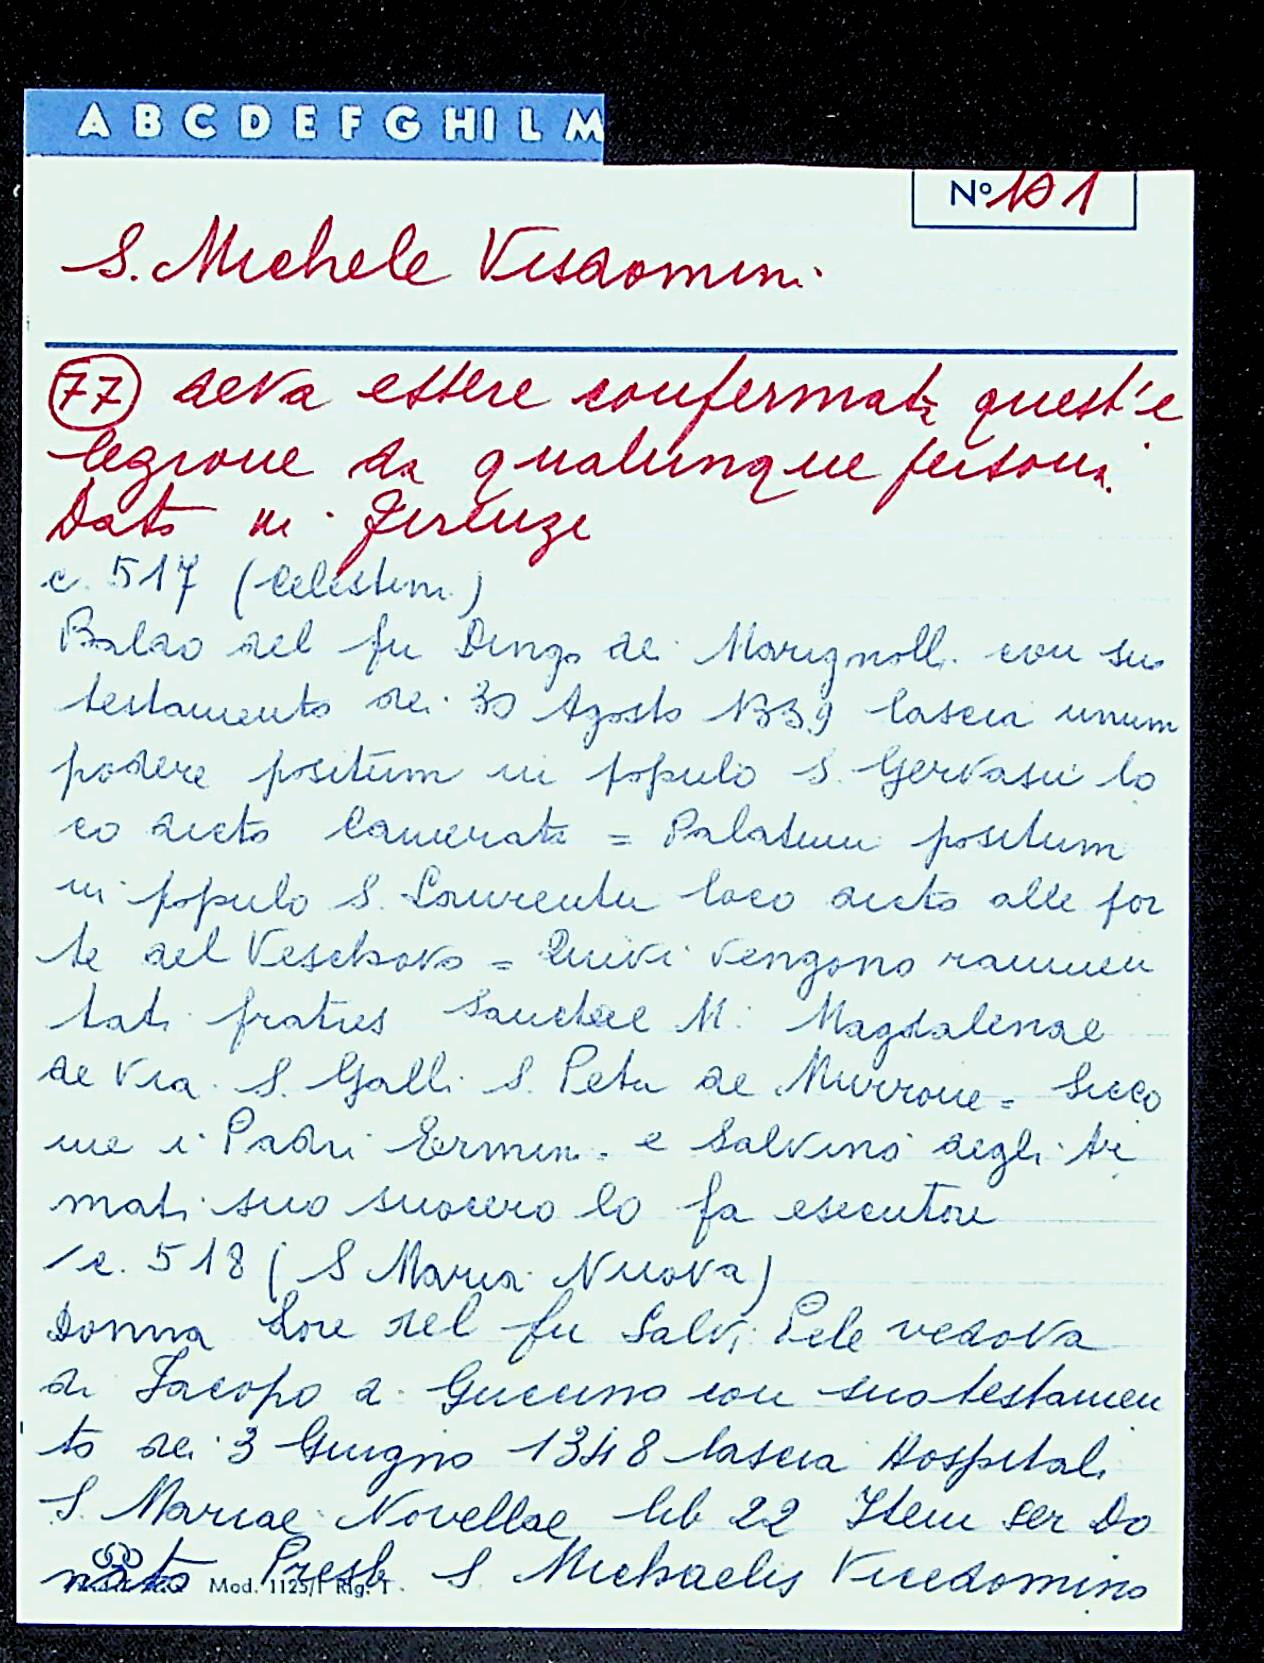 A B C D E F G H I L M
N° 101
S. Michele Visdomini
77 deva essere confermata quest'e
legione da qualunque persona.
Dato in Firenze
c. 517 (Celestini)
Baldo del fu Dingo de Marignolli con suo
testamento dei 30 Agosto 1339 lascia unum
podere positum in populo S. Gervasii lo
co dicto Camerata = Palatium positum
in populo S. Laurentii loco dicto alle por
te del Veschovo = Quivi vengono rammen
tati fratres Sanctae M. Magdalenae
de Via S. Galli S. Petri de Murrone = Sicco
me i Padri Ermini e Salvino degli Ar
mati suo suocero lo fa esecutore
/c. 518 (S Maria Nuova)
Donna Lore del fu Salvi Pele vedova
di Jacopo di Guccino con suo testamen
to dei 3 Giugno 1348 lascia Hospitali
S. Mariae Novellae lib 22 Item ser Do
nato Presb. S Michaelis Vicedomino
Mod. 1125/1 Rig. 1